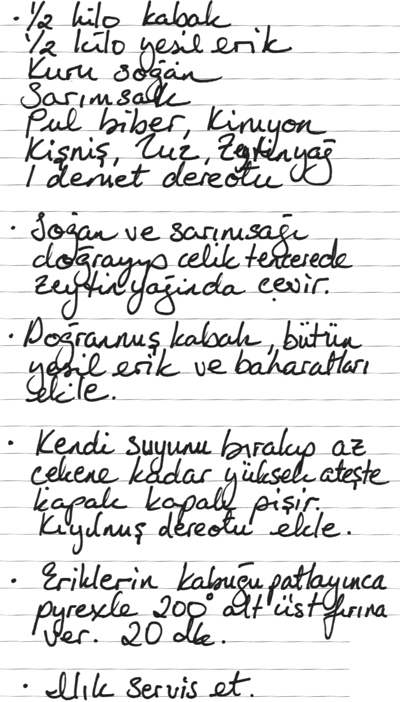 · 1/2 kilo kabak
1/2 kilo yeşil erik
Kuru soğan
Sarımsak
Pul biber, Kimyon
Kişniş, Tuz, Zeytinyağ
1 demet dereotu
· Soğan ve sarımsağı
doğrayıp çelik tencerede
zeytinyağında çevir.
· Doğranmış kabak, bütün
yeşil erik ve baharatları
ekle.
· Kendi suyunu bırakıp az
çekene kadar yüksek ateşte
kapak kapalı pişir.
Kıyılmış dereotu ekle.
· Eriklerin kabuğu patlayınca
pyrexle 200° alt üst fırına
ver. 20 dk.
· Ilık servis et.